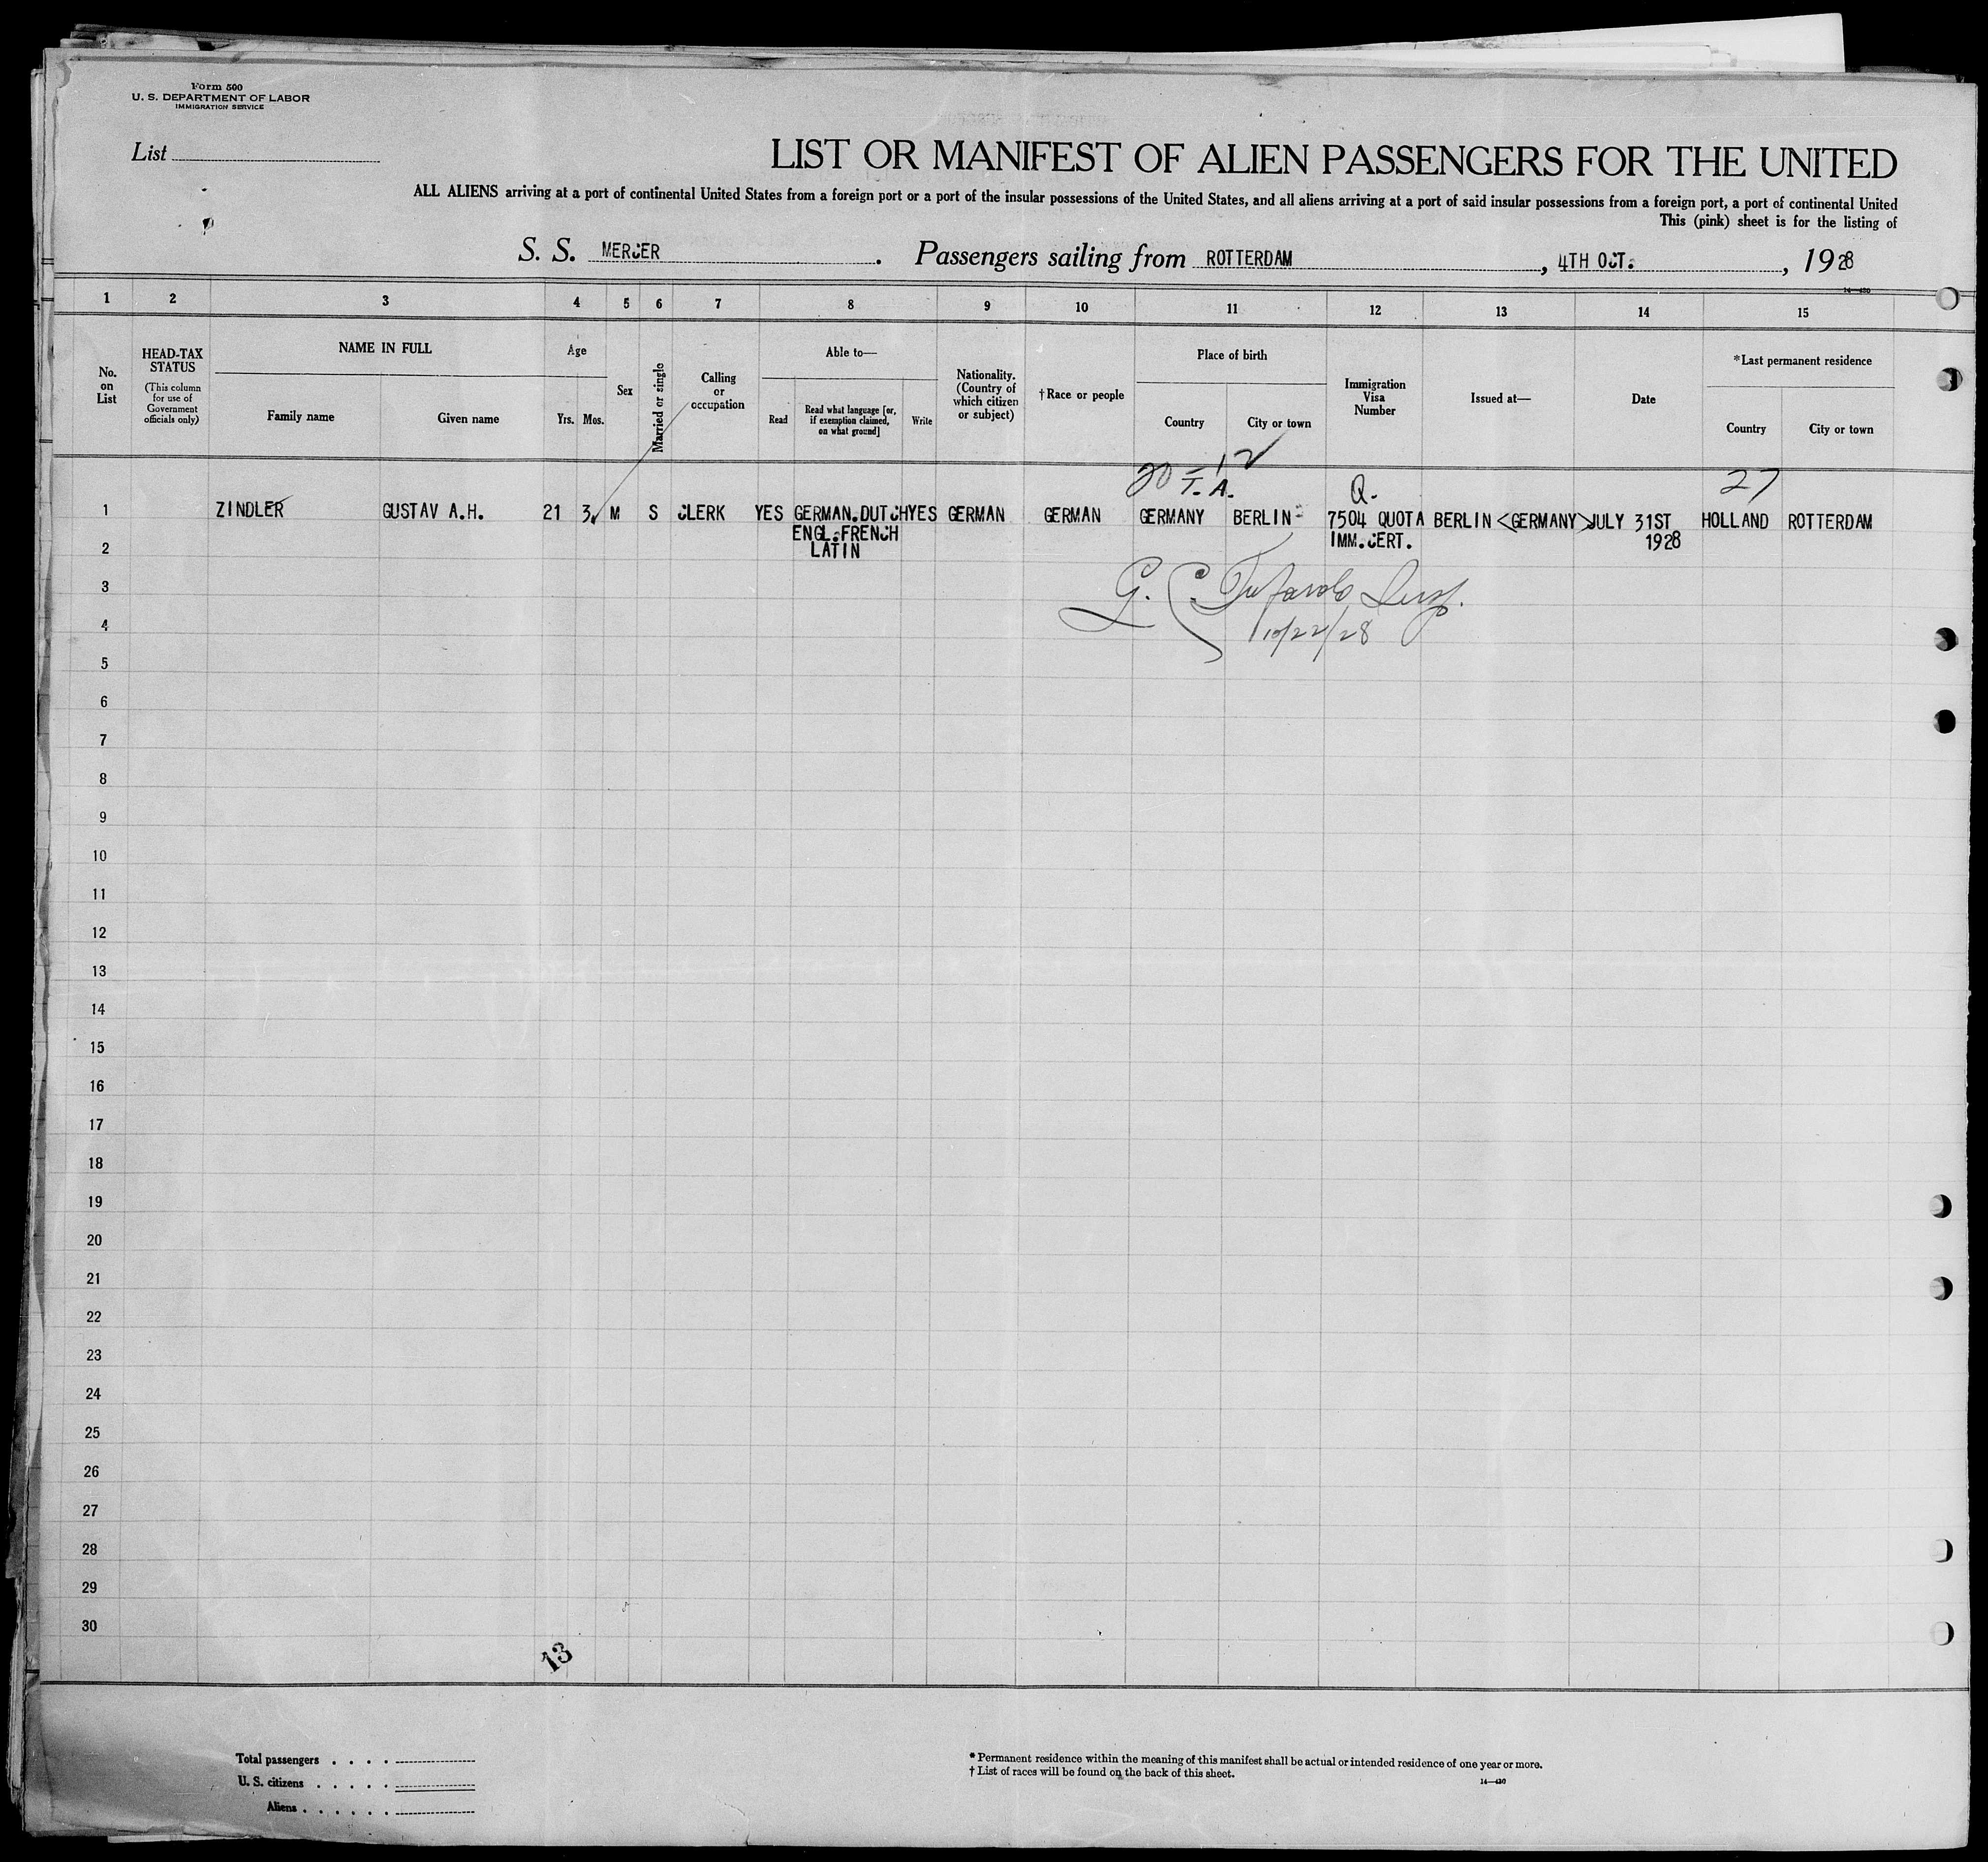 Form 500
U. S. DEPARTMENT OF LABOR
IMMIGRATION SERVICE
List
LIST OR MANIFEST OF ALIEN PASSENGERS FOR THE UNITED
ALL ALIENS arriving at a port of continental United States from a foreign port or a port of the insular possessions of the United States, and all aliens arriving at a port of said insular possessions from a foreign port, a port of continental United
This (pink) sheet is for the listing of
S. S. MERCER. Passengers sailing from ROTTERDAM, 4TH OCT., 1928
14—430
1 2 3 4 5 6 7 8 9 10 11 12 13 14 15
No. on List
HEAD-TAX STATUS
(This column for use of Government officials only)
NAME IN FULL
Family name
Given name
Age
Yrs. Mos.
Sex
Married or single
Calling or occupation
Able to—
Read
Read what language [or, if exemption claimed, on what ground]
Write
Nationality. (Country of which citizen or subject)
†Race or people
Place of birth
Country
City or town
Immigration Visa Number
Issued at—
Date
*Last permanent residence
Country
City or town
20-12
T. A.
Q.
27
1 ZINDLER GUSTAV A.H. 21 3 M S CLERK YES GERMAN.DUTCH YES GERMAN GERMAN GERMANY BERLIN 7504 QUOTA BERLIN <GERMANY> JULY 31ST HOLLAND ROTTERDAM
ENGL.FRENCH IMM.CERT. 1928
2 LATIN
3
G. C. Insp.
4
10/22/28
5
6
7
8
9
10
11
12
13
14
15
16
17
18
19
20
21
22
23
24
25
26
27
28
29
30
13
Total passengers
U. S. citizens
Aliens
* Permanent residence within the meaning of this manifest shall be actual or intended residence of one year or more.
† List of races will be found on the back of this sheet.
14—430